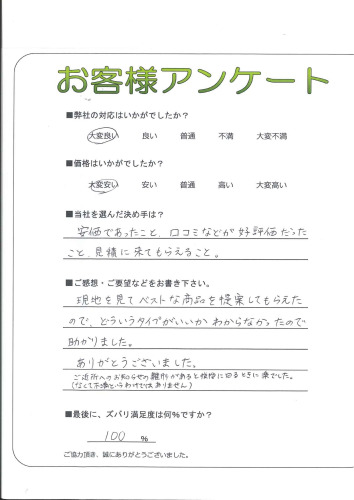 お客様アンケート
■弊社の対応はいかがでしたか?
大変良い 良い 普通 不満 大変不満
■価格はいかがでしたか?
大変安い 安い 普通 高い 大変高い
■当社を選んだ決め手は?
安価であったこと、口コミなどが好評価だった
こと、見積に来てもらえること。
■ご感想・ご要望などをお書き下さい。
現地を見てベストな商品を提案してもらえた
ので、どういうタイプがいいかわからなかったので
助かりました。
ありがとうございました。
ご近所へのお知らせの雛形があると挨拶に回るときに楽でした。
(なくて不満というわけではありません)
■最後に、ズバリ満足度は何%ですか?
100 %
ご協力頂き、誠にありがとうございました。